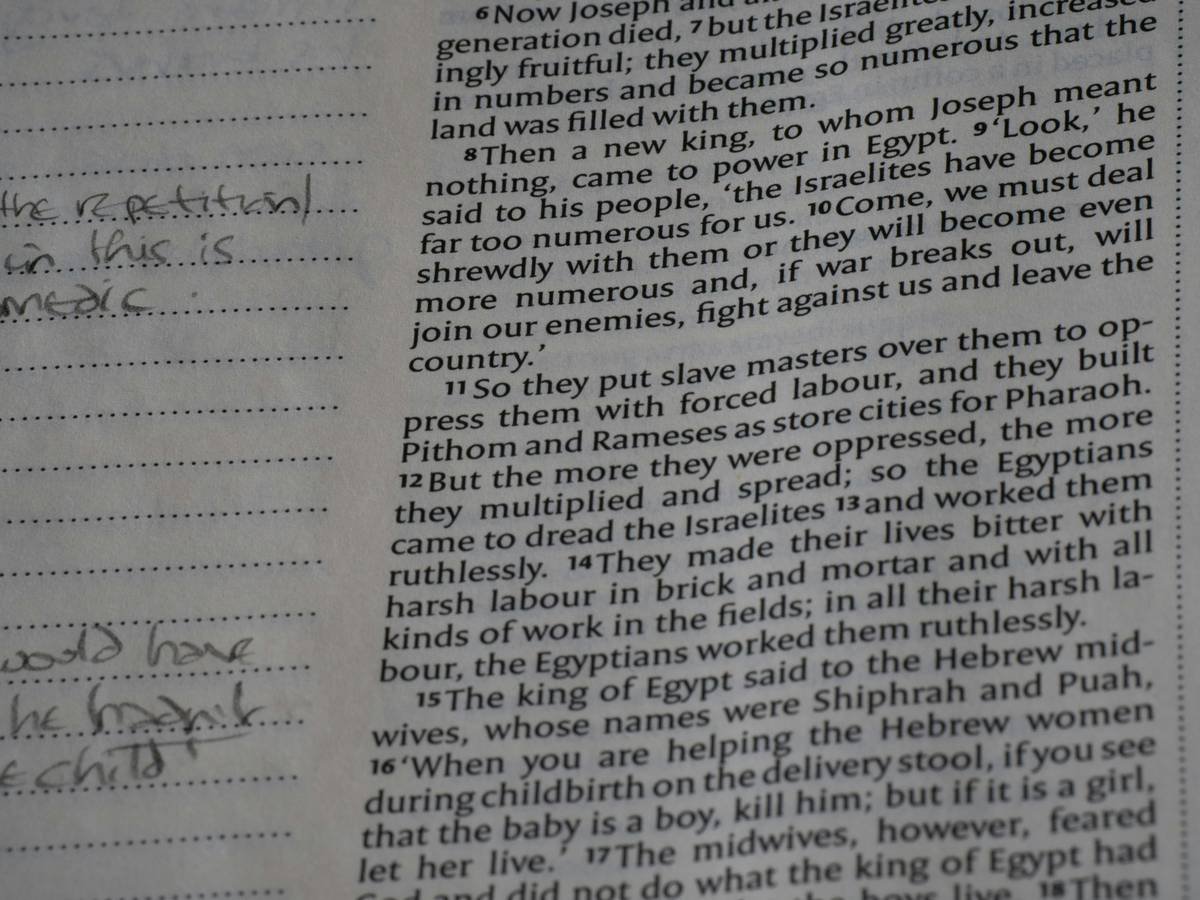 the repetition/
in this is
medic.
would have
he
child"
6 Now Joseph and
generation died, 7 but the
ingly fruitful; they multiplied greatly, increased
in numbers and became so numerous that the
land was filled with them.
8 Then a new king, to whom Joseph meant
nothing, came to power in Egypt. 9 ‘Look,’ he
said to his people, ‘the Israelites have become
far too numerous for us. 10 Come, we must deal
shrewdly with them or they will become even
more numerous and, if war breaks out, will
join our enemies, fight against us and leave the
country.’
11 So they put slave masters over them to op-
press them with forced labour, and they built
Pithom and Rameses as store cities for Pharaoh.
12 But the more they were oppressed, the more
they multiplied and spread; so the Egyptians
came to dread the Israelites 13 and worked them
ruthlessly. 14 They made their lives bitter with
harsh labour in brick and mortar and with all
kinds of work in the fields; in all their harsh la-
bour, the Egyptians worked them ruthlessly.
15 The king of Egypt said to the Hebrew mid-
wives, whose names were Shiphrah and Puah,
16 ‘When you are helping the Hebrew women
during childbirth on the delivery stool, if you see
that the baby is a boy, kill him; but if it is a girl,
let her live.’ 17 The midwives, however, feared
God and did not do what the king of Egypt had
the boys live. 18 Then